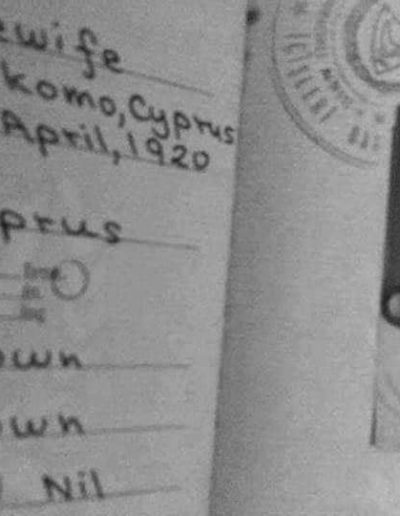 ewife
komo, Cyprus
April, 1920
prus
own
own
Nil